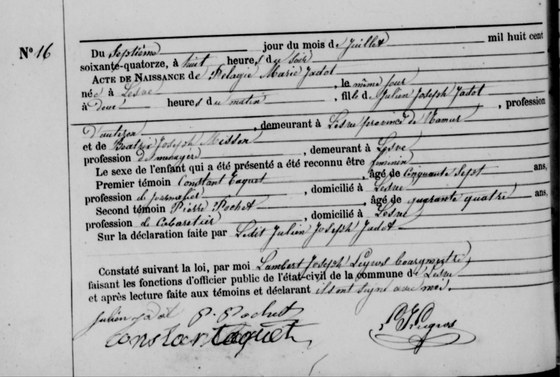 N° 16
Du Septième jour du mois de Juillet mil huit cent
soixante-quatorze, à huit heures du soir
ACTE DE NAISSANCE de Pelagie Marie Jadot
né à , le même jour
à heures du matin, fils de Julien Joseph Jadot
, demeurant à province de Namur, profession
et de Joseph
profession de menagère, demeurant à
Le sexe de l'enfant qui a été présenté a été reconnu être feminin
Premier témoin Constant Taquet, âgé de Cinquante Sept ans,
profession de journalier, domicilié à
Second témoin Pierre Pochet, âgé de quarante quatre ans,
profession de Cabaretier, domicilié à
Sur la déclaration faite par Ledit Julien Joseph Jadot
Constaté suivant la loi, par moi Lambert Joseph Bourgmestre
faisant les fonctions d'officier public de l'état-civil de la commune de
et après lecture faite aux témoins et déclarant ils ont signé avec moi.
Julien Jadot P. Pochet
Constant Taquet